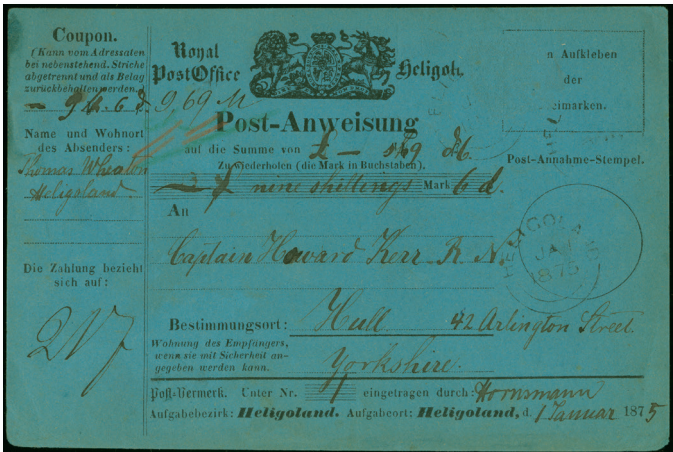 Coupon.
(Kann vom Adressaten
bei nebenstehend. Striche
abgetrennt und als Belag
zurückbehalten werden.)
9 s. 6 d.
Name und Wohnort
des Absenders:
Thomas Wheaton
Heligoland.
Die Zahlung bezieht
sich auf:
217
Royal
Post Office
Heligol.
9,69 M
Post-Anweisung
auf die Summe von £ — s 9 d 6
Zu wiederholen (die Mark in Buchstaben),
nine shillings Mark 6 d.
An
Captain Howard Kerr R. N.
Bestimmungsort: Hull 42 Arlington Street
Wohnung des Empfängers,
wenn sie mit Sicherheit an-
gegeben werden kann.
Yorkshire.
Post-Vermerk. Unter Nr. eingetragen durch:
Aufgabebezirk: Heligoland. Aufgabeort: Heligoland, d. 1 Januar 1875
n Aufkleben
der
eimarken.
Post-Annahme-Stempel.
HELIGOLAND
JA 1
1875